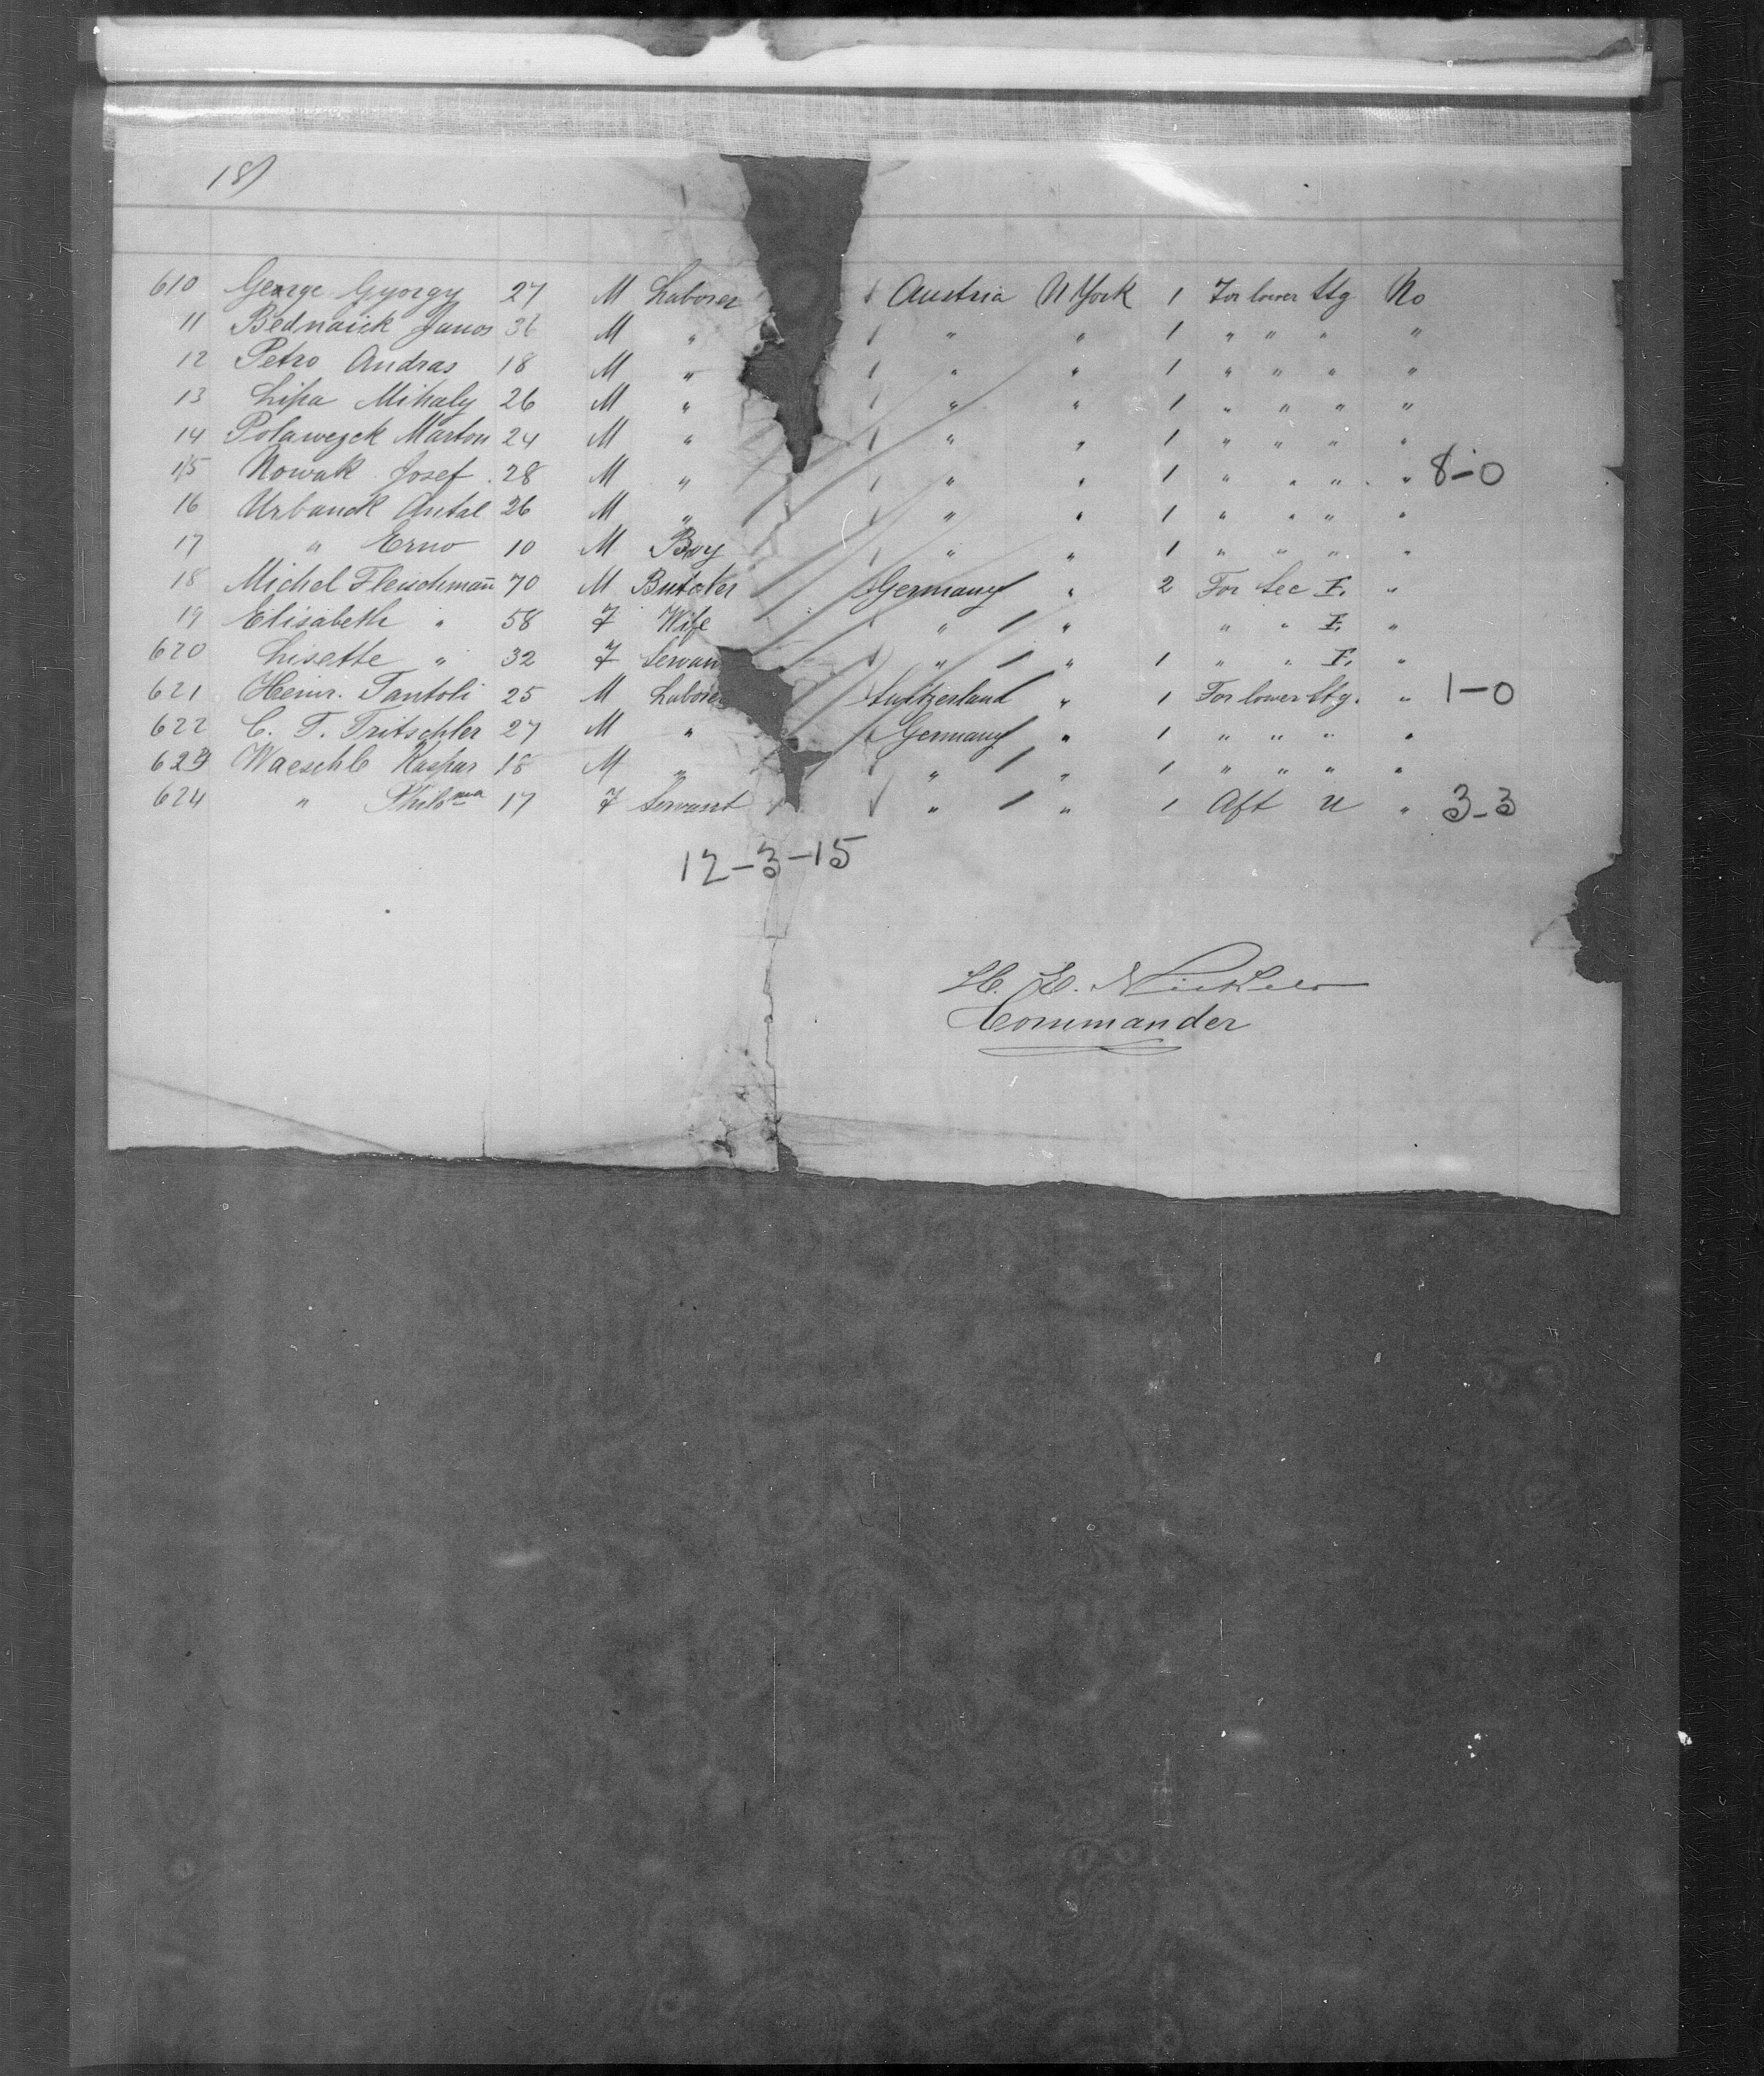 18)
610 George Gyorgy 27 M Laborer Austria N York 1 For lower Stg No
11 Bednaick Janos 36 M " " " 1 " " " "
12 Petro Andras 18 M " " " 1 " " " "
13 Lipa Mihaly 26 M " " " 1 " " " "
14 Polawezck Marton 24 M " " " 1 " " " "
15 Nowak Josef 28 M " " " 1 " " " " 8-0
16 Urbanek Antal 26 M " " " 1 " " " "
17 " Erno 10 M Boy " " 1 " " " "
18 Michel Fleischman̄ 70 M Butcher Germany " 2 For Sec F. "
19 Elisabeth " 58 F Wife " " " " F. "
620 Lisette " 32 F Servan " " 1 " " F. "
621 Heinr. Tantoli 25 M Laborer Switzerland " 1 For lower Stg. " 1-0
622 C. F. Fritschler 27 M " Germany " 1 " " " "
623 Waeschle Kaspar 18 M " " " 1 " " " "
624 " 17 F Servant " " 1 Aft U " 3-3
12-3-15
H.
Commander